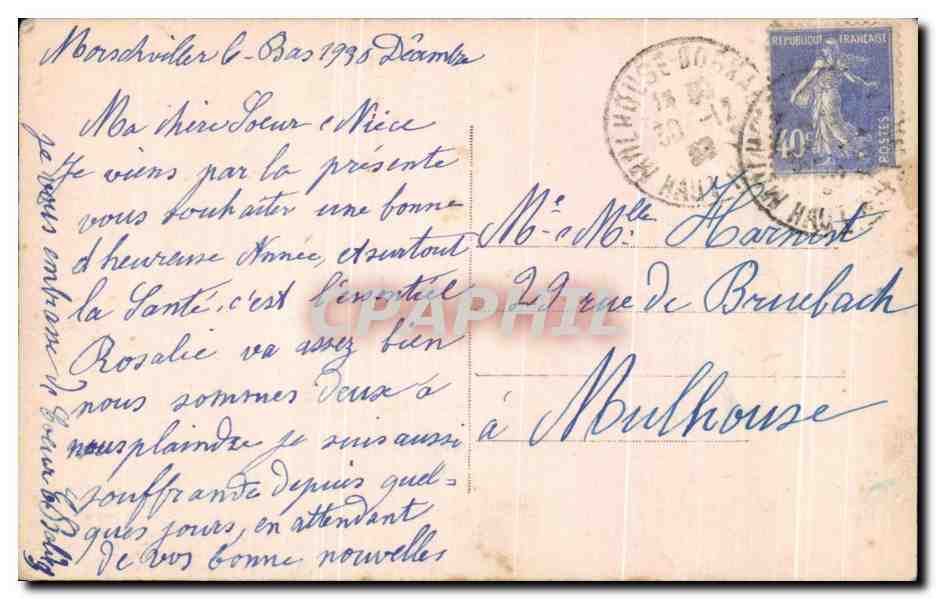 Morschviller le-Bas 1930 Décembre
Ma chère Soeur e Nièce
Je viens par la présente
vous souhaiter une bonne
d'heureuse Année, et surtout
la Santé, c'est l'éssentiel
Rosalie va assez bien
nous sommes deux à
nous plaindre je suis aussi
souffrande depuis quel-
ques jours, en attendant
de vos bonne nouvelles
je vous embrasse
Soeur
REPUBLIQUE FRANÇAISE
40c
POSTES
MULHOUSE DORNACH
HAUT
Me e Mlle Harnist
29 rue de Bruebach
à Mulhouse
CPAPHIL